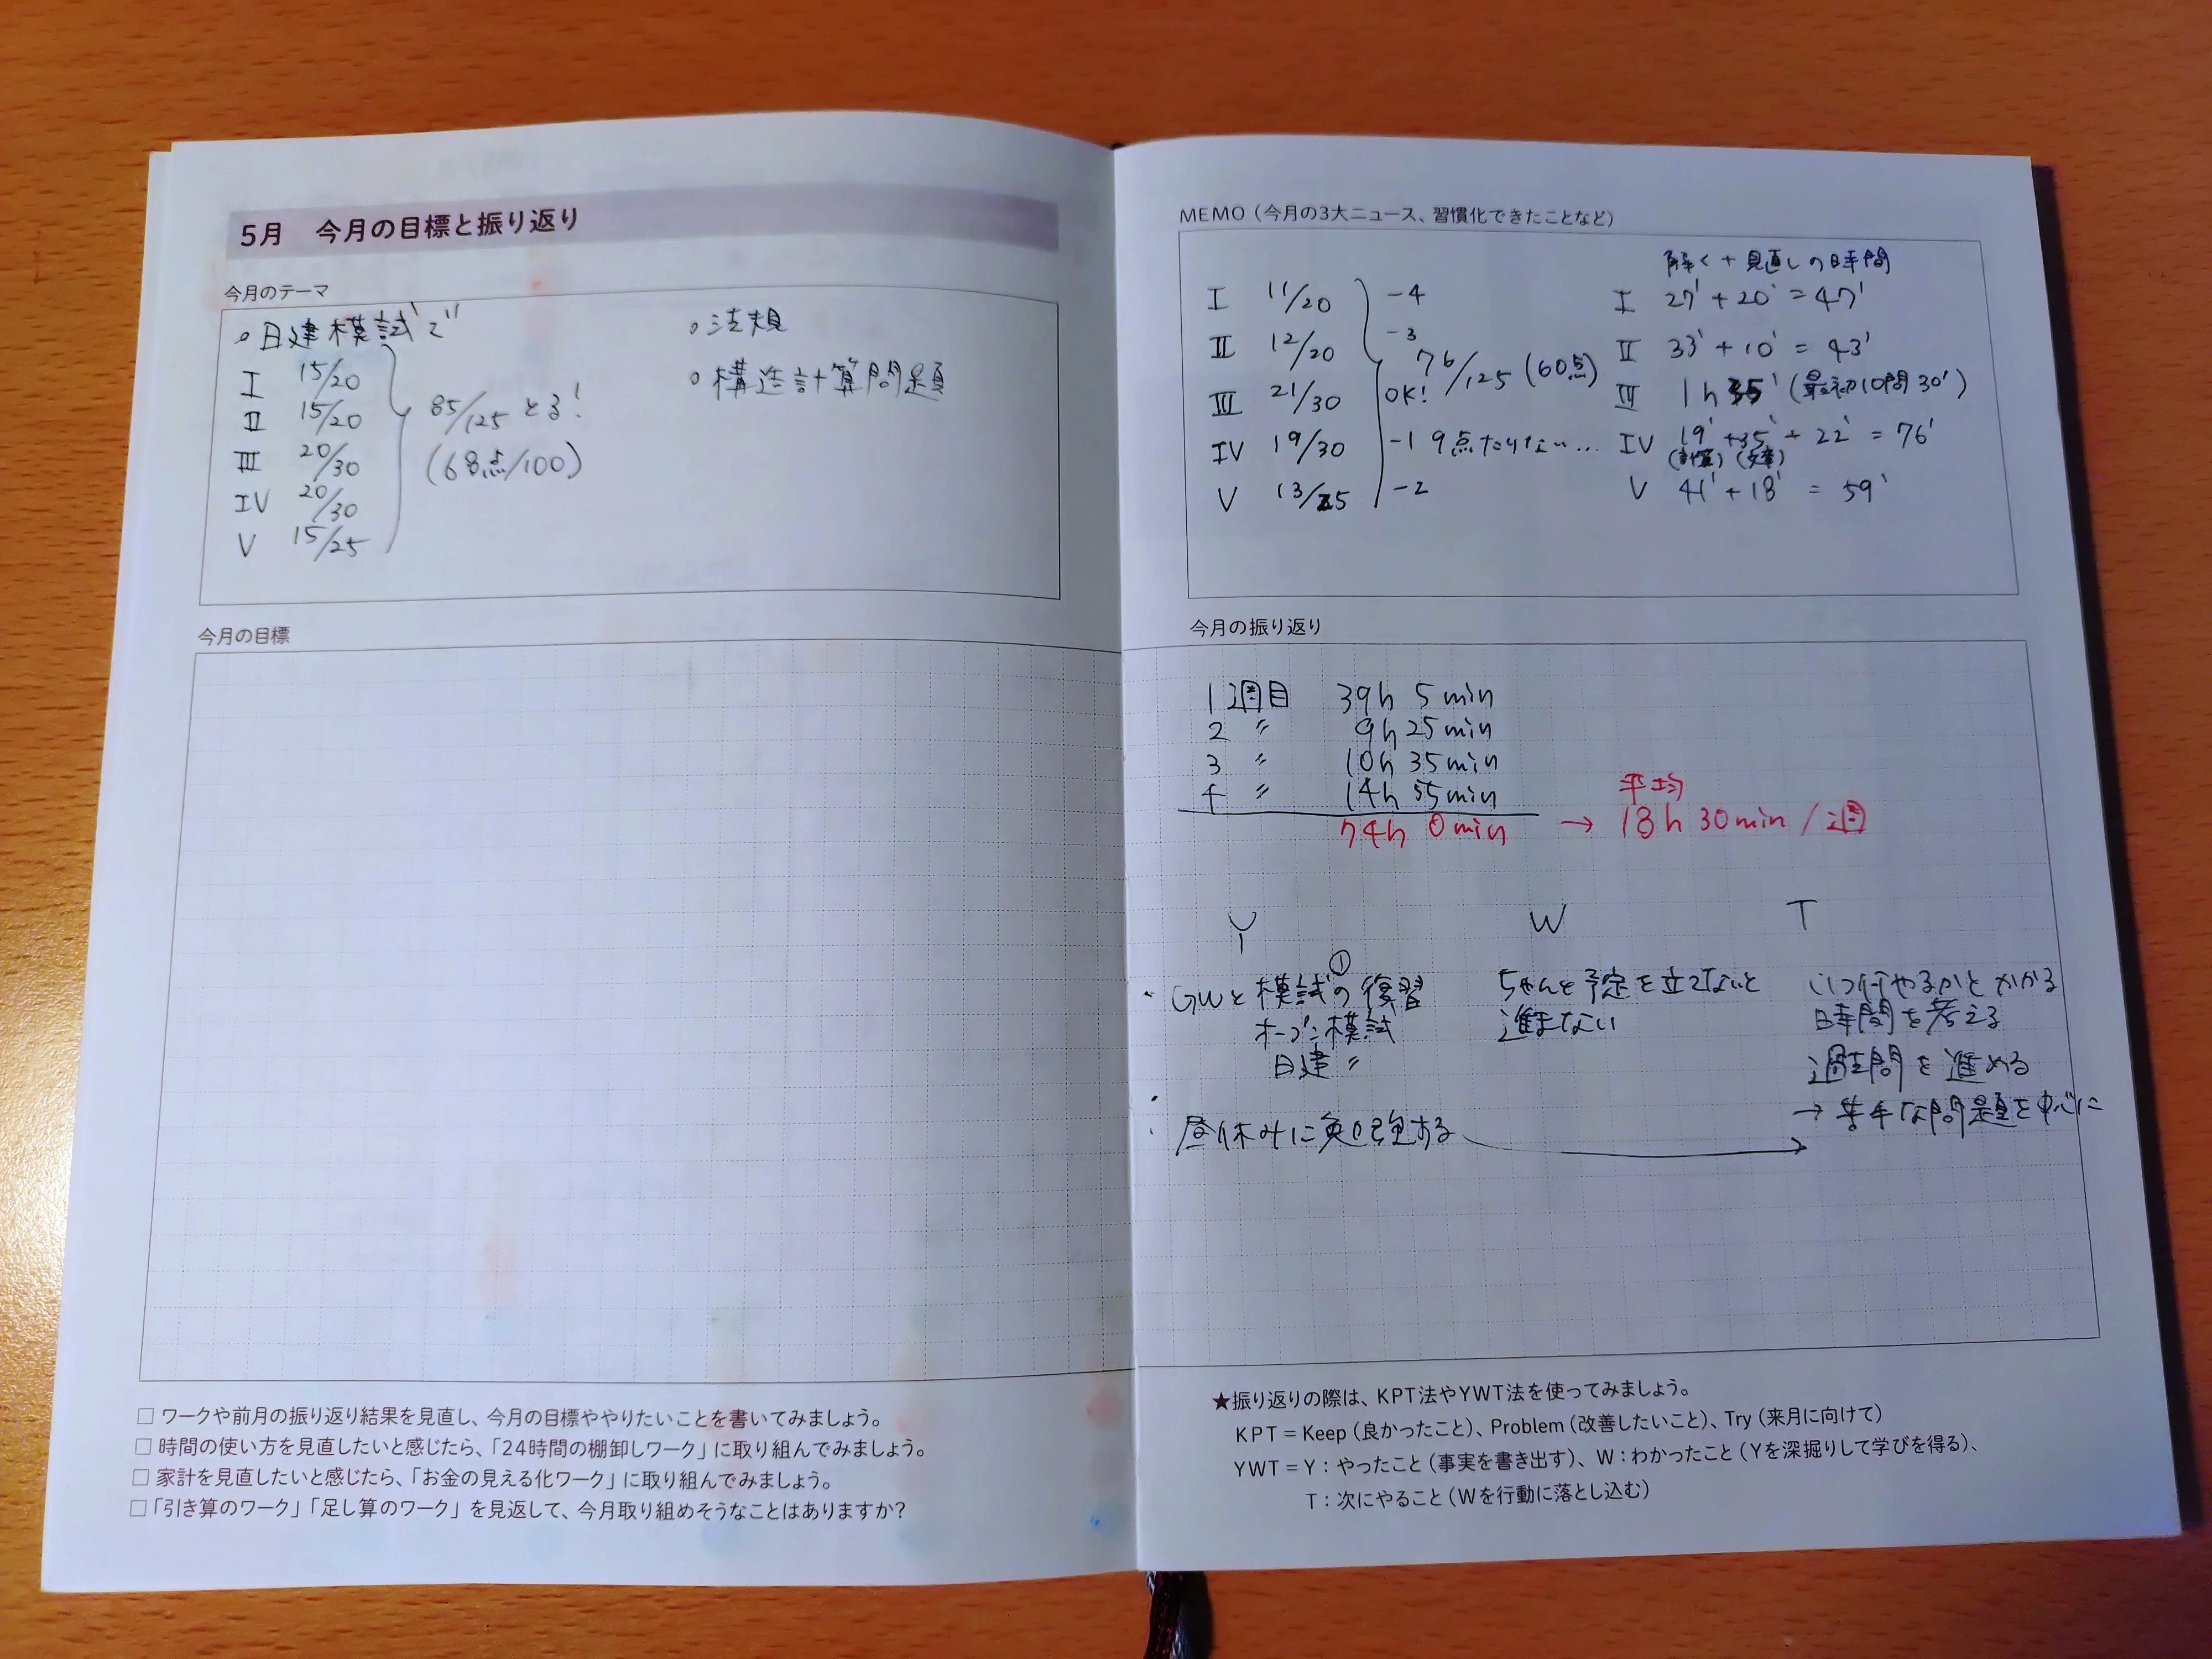 5月　今月の目標と振り返り
今月のテーマ
○日建模試で
I 15/20
II 15/20
III 20/30
IV 20/30
V 15/25
85/125 とる!
(68点/100)
○法規
○構造計算問題
今月の目標
□ ワークや前月の振り返り結果を見直し、今月の目標ややりたいことを書いてみましょう。
□ 時間の使い方を見直したいと感じたら、「24時間の棚卸しワーク」に取り組んでみましょう。
□ 家計を見直したいと感じたら、「お金の見える化ワーク」に取り組んでみましょう。
□ 「引き算のワーク」「足し算のワーク」を見返して、今月取り組めそうなことはありますか?
MEMO（今月の3大ニュース、習慣化できたことなど）
I 11/20 -4
II 12/20 -3
III 21/30 OK!
IV 19/30 -1
V 13/25 -2
76/125 (60点)
9点たりない…
解く+見直しの時間
I 27' + 20' = 47'
II 33' + 10' = 43'
III 1h 35' (最初10問30')
IV 19' + 35' + 22' = 76'
(計算) (文章)
V 41' + 18' = 59'
今月の振り返り
1週目 39h 5min
2 〃 9h 25min
3 〃 10h 35min
4 〃 14h 55min
74h 0min → 平均 18h 30min/週
Y W T
・GWと模試①の復習
オープン模試
日建 〃
・昼休みに勉強する
ちゃんと予定を立てないと
進まない
いつ何やるかとかかる
時間を考える
過去問を進める
→苦手な問題を中心に
★振り返りの際は、KPT法やYWT法を使ってみましょう。
KPT = Keep（良かったこと）、Problem（改善したいこと）、Try（来月に向けて）
YWT = Y：やったこと（事実を書き出す）、W：わかったこと（Yを深掘りして学びを得る）、
T：次にやること（Wを行動に落とし込む）